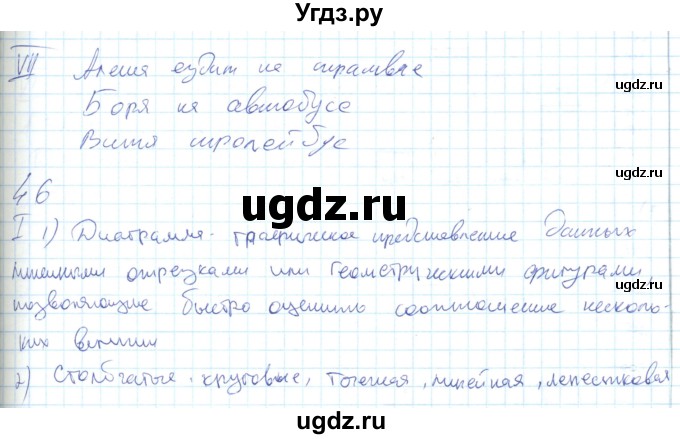 Угдз.ру
VII Алеша ездит на трамвае
ugdz.ru
Боря на автобусе
Витя тролейбус
ugdz.ru
46
ugdz.ru
I 1) Диаграмма - графическое представление данных
линейными отрезками или геометрическими фигурами
позволяющие быстро оценить соотношение несколь-
ugdz.ru
ких величин
2) Столбчатые, круговые, точечная, линейная, лепестковая
ugdz.ru